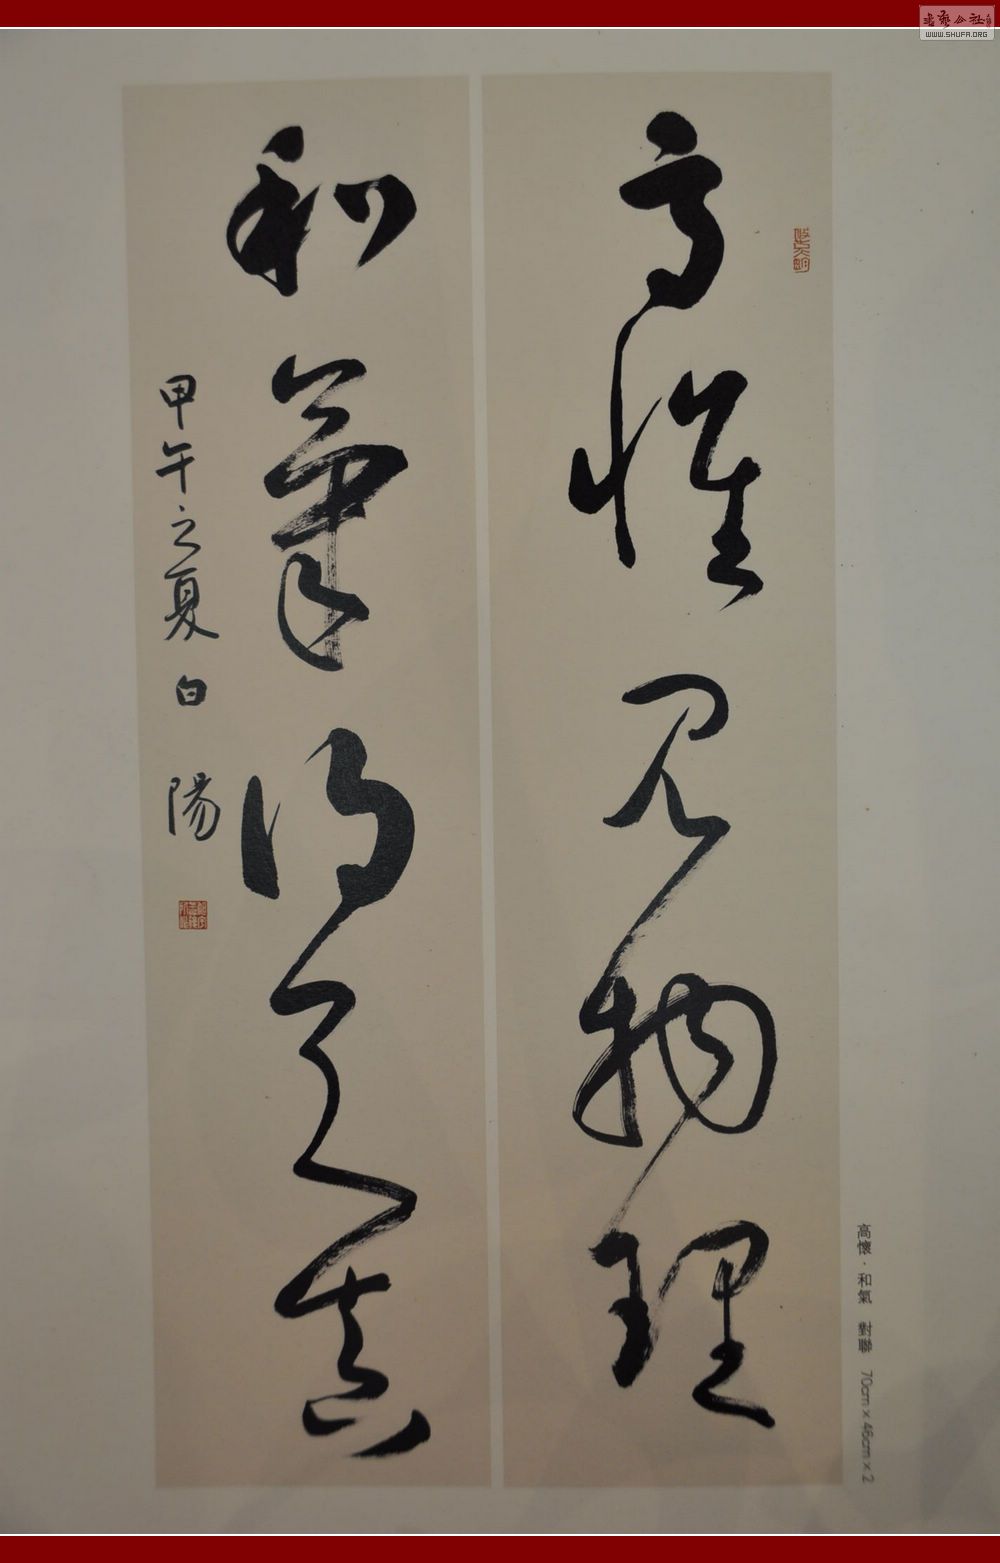 高懷見物理
和氣得天真
甲午之夏 白陽
高懷·和氣 對聯 70cm×46cm×2
書藝公社
WWW.SHUFA.ORG